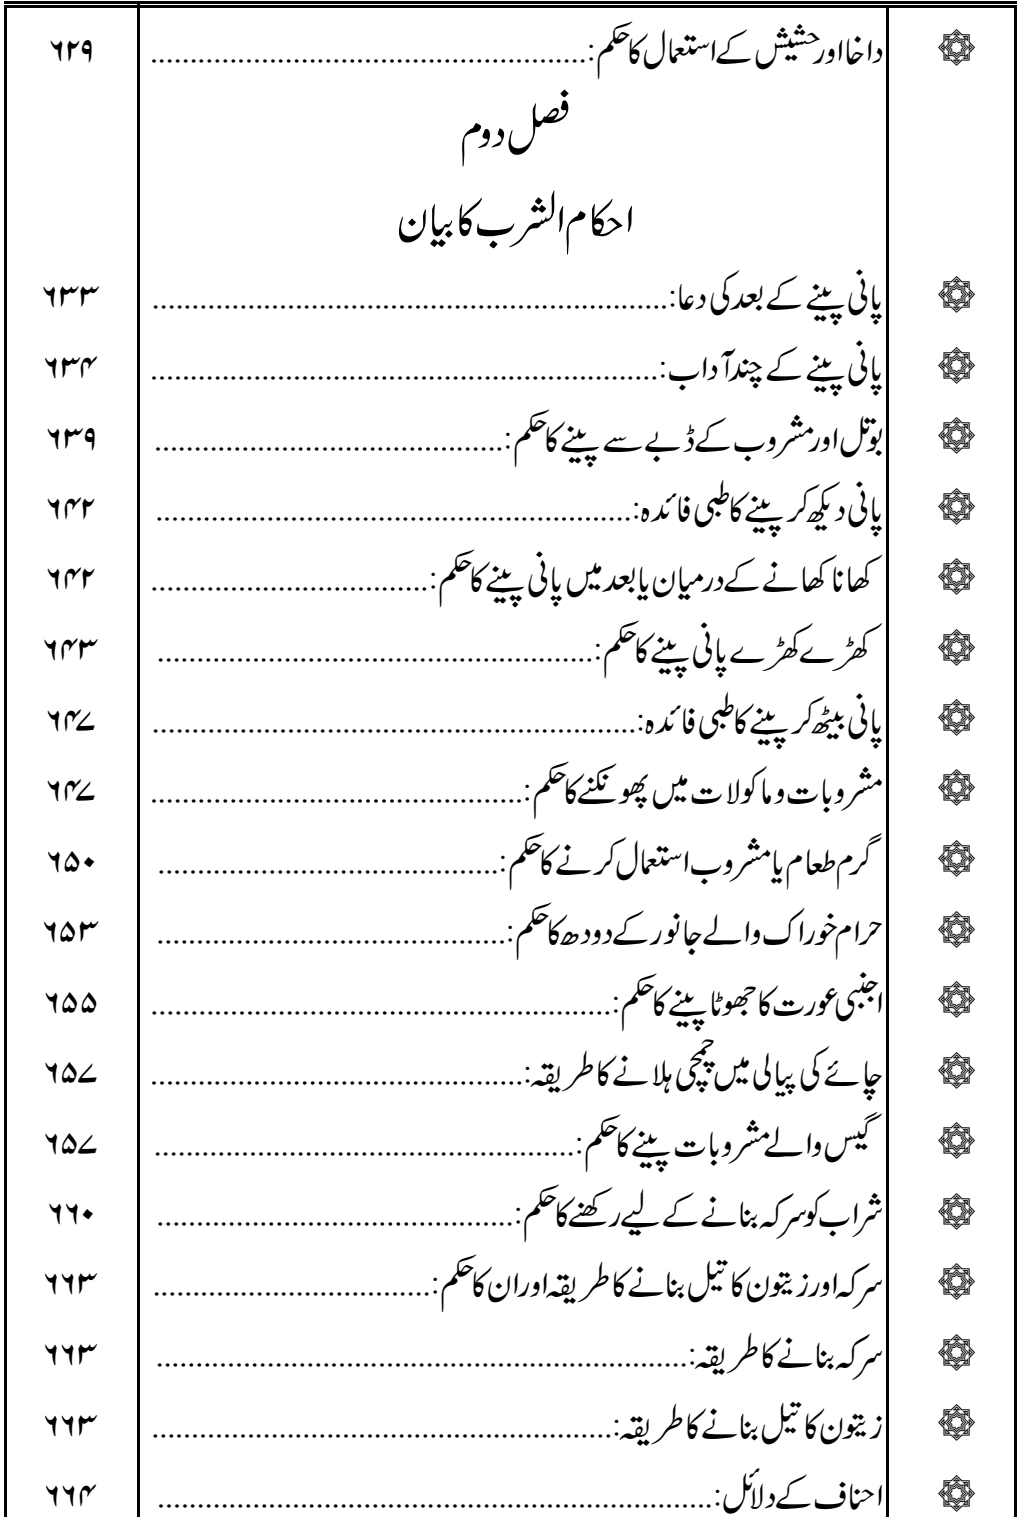 داخااور حشیش کے استعمال کا حکم: ۶۲۹
فصل دوم
احکام الشرب کا بیان
پانی پینے کے بعد کی دعا: ۶۳۳
پانی پینے کے چند آداب: ۶۳۴
بوتل اور مشروب کے ڈبے سے پینے کا حکم: ۶۳۹
پانی دیکھ کر پینے کا طبی فائدہ: ۶۴۲
کھانا کھانے کے درمیان یا بعد میں پانی پینے کا حکم: ۶۴۲
کھڑے کھڑے پانی پینے کا حکم: ۶۴۳
پانی بیٹھ کر پینے کا طبی فائدہ: ۶۴۷
مشروبات و ماکولات میں پھونکنے کا حکم: ۶۴۷
گرم طعام یا مشروب استعمال کرنے کا حکم: ۶۵۰
حرام خوراک والے جانور کے دودھ کا حکم: ۶۵۳
اجنبی عورت کا جھوٹا پینے کا حکم: ۶۵۵
چائے کی پیالی میں چمچی ہلانے کا طریقہ: ۶۵۷
گیس والے مشروبات پینے کا حکم: ۶۵۷
شراب کو سرکہ بنانے کے لیے رکھنے کا حکم: ۶۶۰
سرکہ اور زیتون کا تیل بنانے کا طریقہ اور ان کا حکم: ۶۶۳
سرکہ بنانے کا طریقہ: ۶۶۳
زیتون کا تیل بنانے کا طریقہ: ۶۶۳
احناف کے دلائل: ۶۶۴